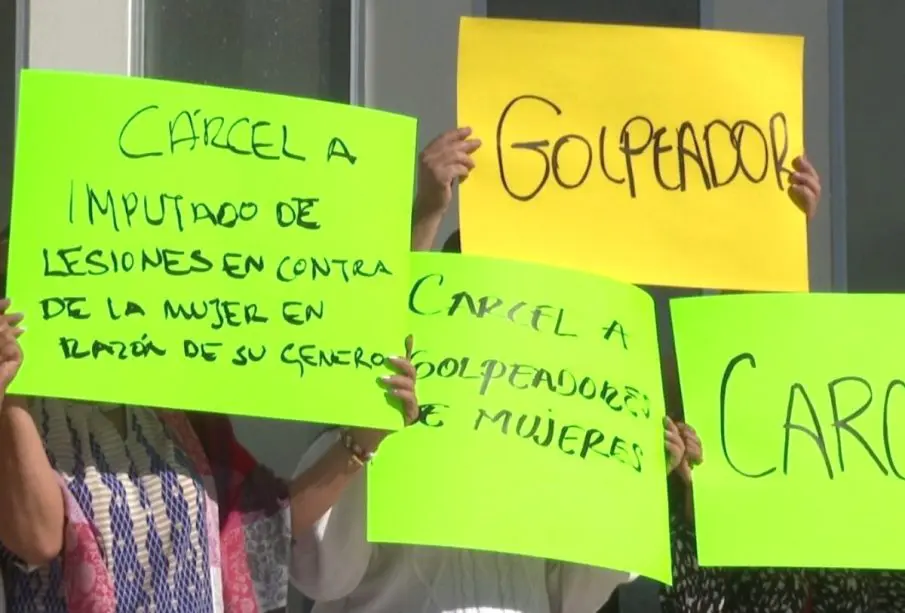 CÁRCEL A
IMPUTADO DE
LESIONES EN CONTRA
DE LA MUJER EN
RAZÓN DE SU GENERO
GOLPEADOR
CARCEL A
GOLPEADORES
DE MUJERES
CARC